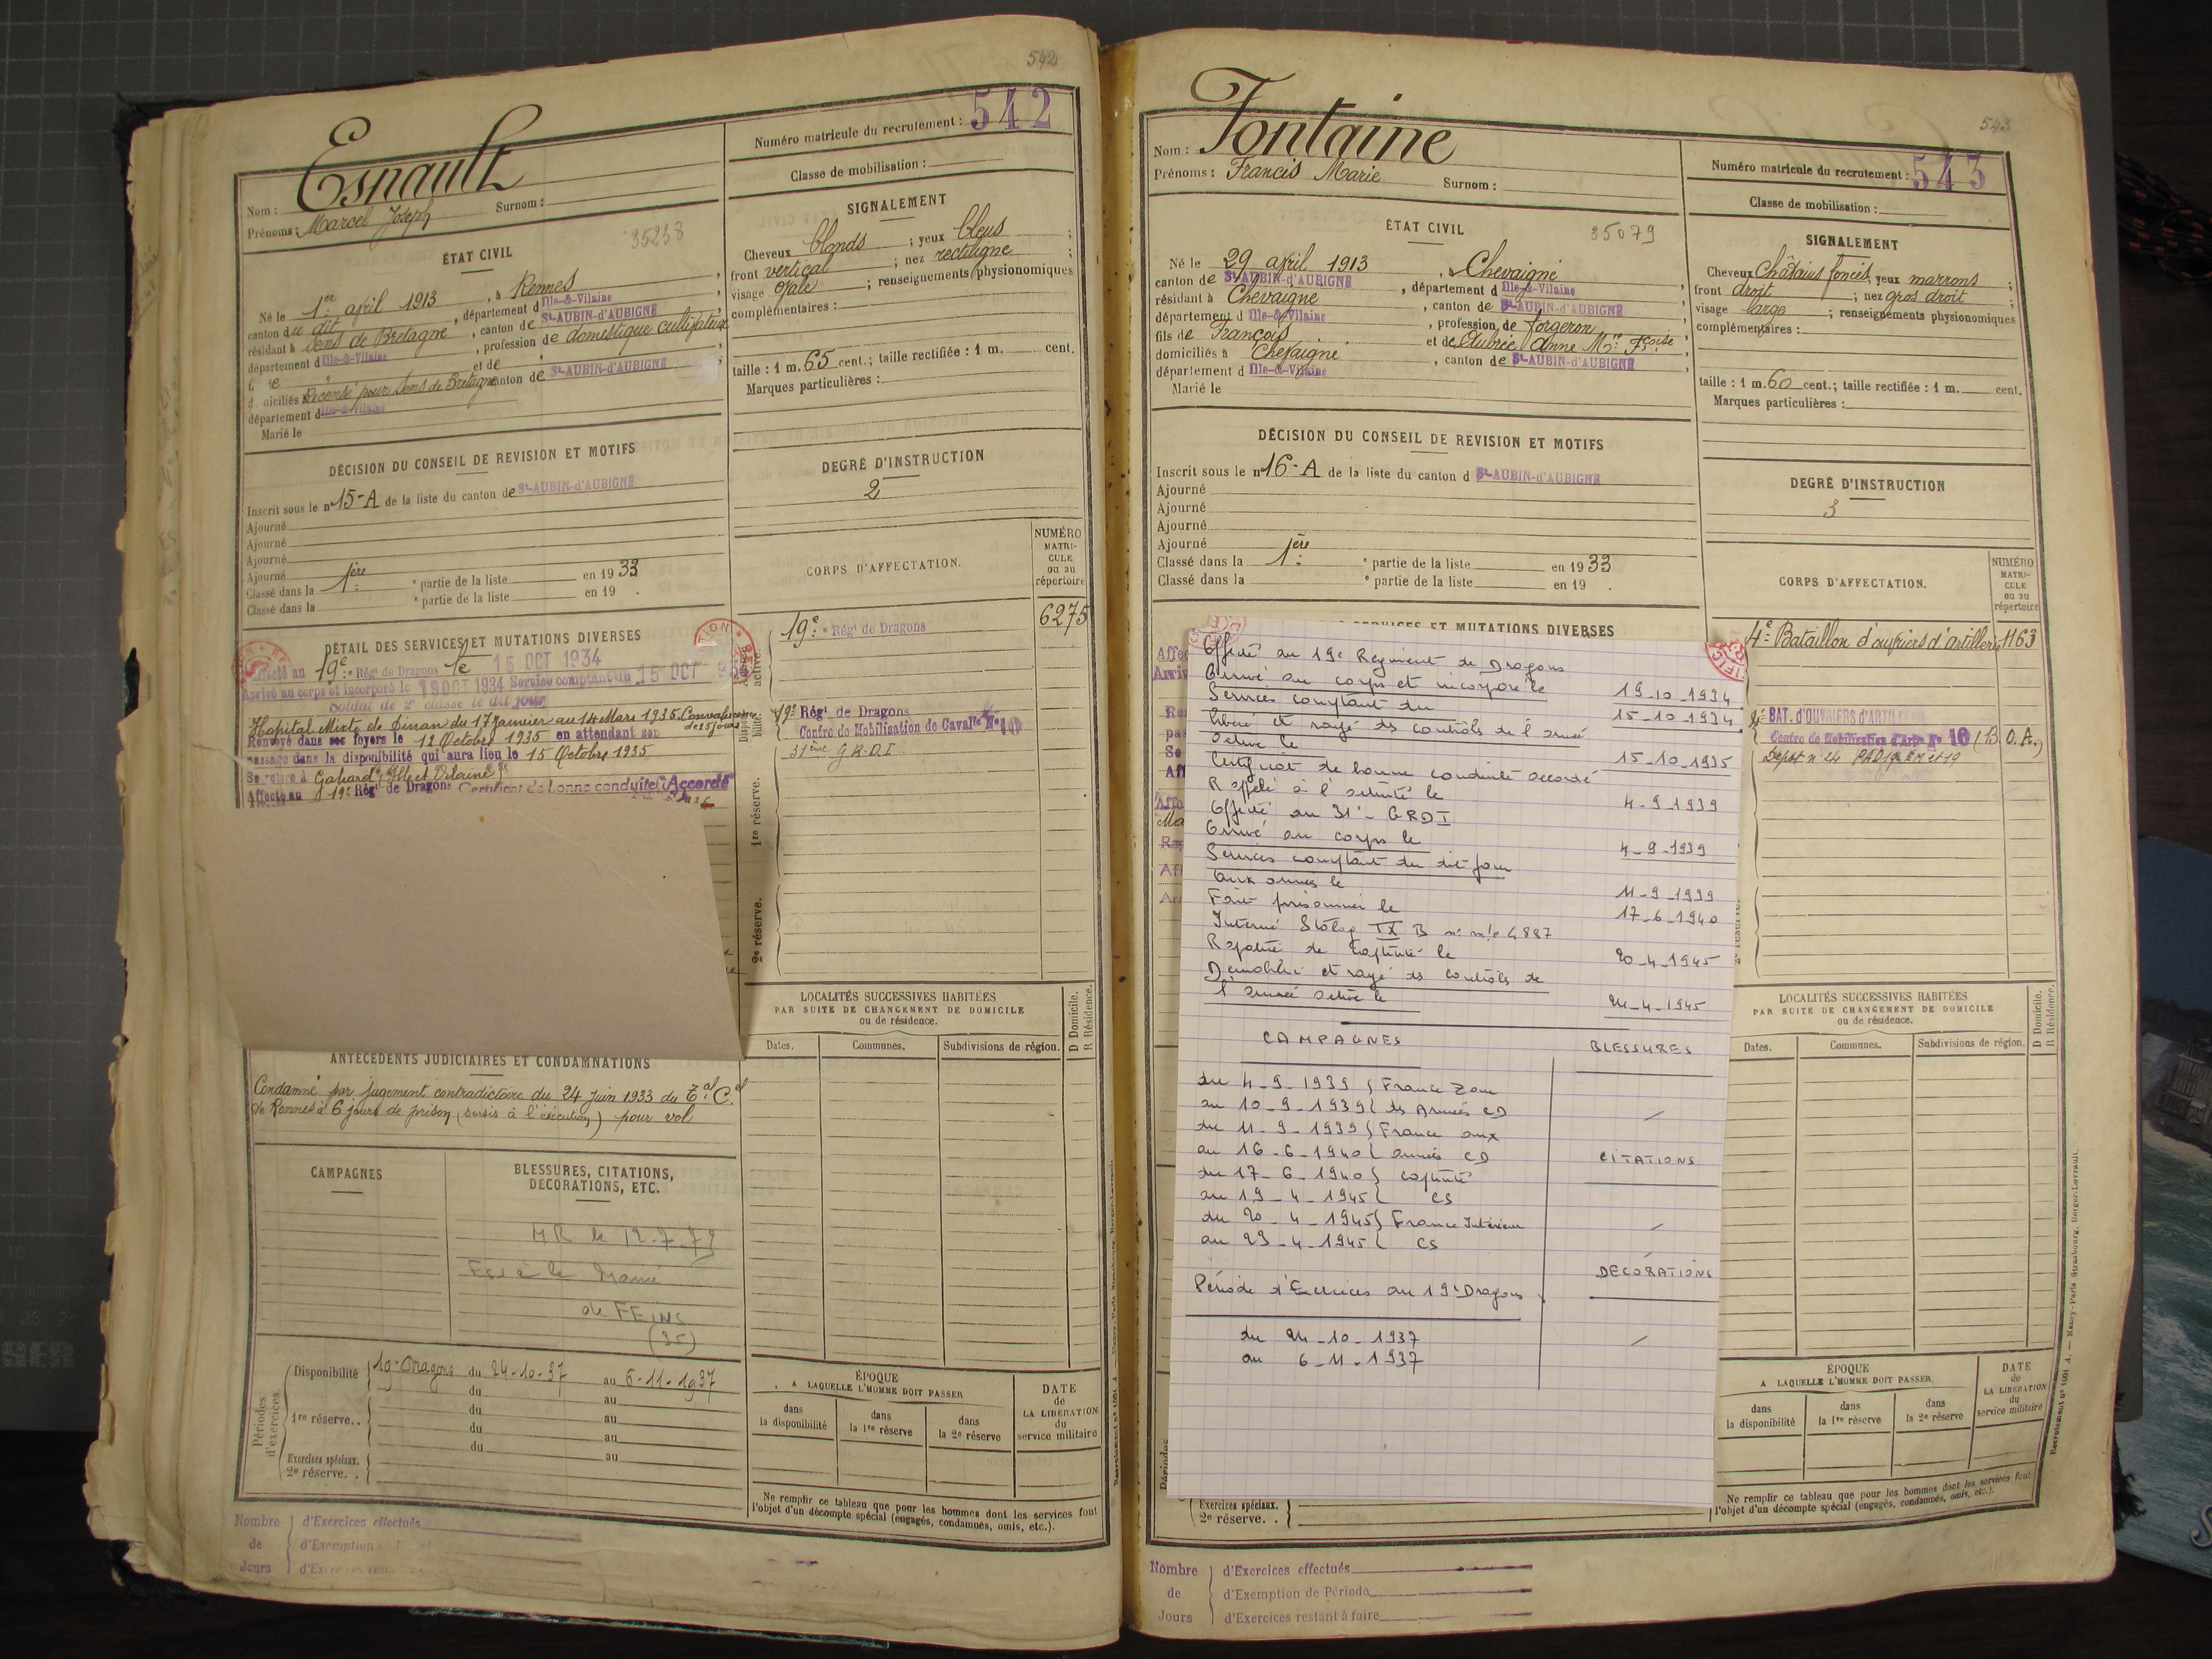 542
Esnault
Nom :
Prénoms : Marcel Joseph Surnom :
Numéro matricule du recrutement : 542
Classe de mobilisation :
35238
ÉTAT CIVIL
Né le 1er avril 1913, à Rennes
canton du dit, département d Ille-&-Vilaine
résidant à Sens de Bretagne, canton de St-AUBIN-d'AUBIGNÉ
département d Ille-&-Vilaine, profession de domestique cultivateur
et de
domiciliés Recensé pour Sens de Bretagne canton de St-AUBIN-d'AUBIGNÉ
département d Ille-&-Vilaine
Marié le
SIGNALEMENT
Cheveux blonds ; yeux bleus ;
front vertical ; nez rectiligne ;
visage ovale ; renseignements physionomiques
complémentaires :
taille : 1 m. 65 cent.; taille rectifiée : 1 m. cent.
Marques particulières :
DÉCISION DU CONSEIL DE REVISION ET MOTIFS
Inscrit sous le n° 15-A de la liste du canton de St-AUBIN-d'AUBIGNÉ
Ajourné
Ajourné
Ajourné
Ajourné
Classé dans la 1ère partie de la liste en 1933
Classé dans la e partie de la liste en 19 .
DEGRÉ D'INSTRUCTION
2
CORPS D'AFFECTATION.
NUMÉRO MATRI-CULE ou au répertoire
19e Régt de Dragons 6275
19e Régt de Dragons
Centre de Mobilisation de Cavalie N° 10
31ème G.R.D.I
active.
1re réserve.
2e réserve.
DÉTAIL DES SERVICES ET MUTATIONS DIVERSES
Affecté au 19e Régt de Dragons le 15 OCT 1934
Arrivé au corps et incorporé le 19 OCT 1934 Service comptant du 15 OCT
Soldat de 2e classe le dit jour
Hopital Mixte de Dinan du 17 Janvier au 14 Mars 1935. Convalescence de 25 jours
Renvoyé dans ses foyers le 12 Octobre 1935 en attendant son
passage dans la disponibilité qui aura lieu le 15 Octobre 1935
Se retire à Gahard, Ille et Vilaine
Affecté au 19e Régt de Dragons Certificat de bonne conduite "Accordé"
ANTÉCÉDENTS JUDICIAIRES ET CONDAMNATIONS
Condamné par jugement contradictoire du 24 Juin 1933 du Tal Cel
de Rennes à 6 jours de prison (sursis à l'exécution) pour vol
CAMPAGNES
BLESSURES, CITATIONS, DÉCORATIONS, ETC.
MR le 12.7.79
de FEINS
(35)
LOCALITÉS SUCCESSIVES HABITÉES
PAR SUITE DE CHANGEMENT DE DOMICILE
ou de résidence.
D Domicile. R Résidence.
Dates. Communes. Subdivisions de région.
Périodes d'exercices.
Disponibilité 19e Dragons du 24-10-37 au 6-11-1937
du au
1re réserve.. du au
du au
du au
Exercices spéciaux.
2e réserve. .
ÉPOQUE
A LAQUELLE L'HOMME DOIT PASSER
dans la disponibilité
dans la 1re réserve
dans la 2e réserve
DATE de LA LIBÉRATION du service militaire
Ne remplir ce tableau que pour les hommes dont les services font
l'objet d'un décompte spécial (engagés, condamnés, omis, etc.).
Nombre de Jours
d'Exercices effectués
d'Exemption
543
Fontaine
Nom :
Prénoms : Francis Marie Surnom :
Numéro matricule du recrutement : 543
Classe de mobilisation :
35079
ÉTAT CIVIL
Né le 29 avril 1913, à Chevaigné
canton de St-AUBIN-d'AUBIGNÉ, département d Ille-&-Vilaine
résidant à Chevaigné, canton de St-AUBIN-d'AUBIGNÉ
département d Ille-&-Vilaine, profession de forgeron
fils de François et de Aubrée Anne Mie Fçoise
domiciliés à Chevaigné, canton de St-AUBIN-d'AUBIGNÉ
département d Ille-&-Vilaine
Marié le
SIGNALEMENT
Cheveux Châtains foncés, yeux marrons ;
front droit ; nez gros droit ;
visage large ; renseignements physionomiques
complémentaires :
taille : 1 m. 60 cent.; taille rectifiée : 1 m. cent.
Marques particulières :
DÉCISION DU CONSEIL DE REVISION ET MOTIFS
Inscrit sous le n° 16-A de la liste du canton d St-AUBIN-d'AUBIGNÉ
Ajourné
Ajourné
Ajourné
Ajourné
Classé dans la 1ère partie de la liste en 1933
Classé dans la e partie de la liste en 19 .
DEGRÉ D'INSTRUCTION
3
CORPS D'AFFECTATION.
NUMÉRO MATRI-CULE ou au répertoire
4e Bataillon d'ouvriers d'artillerie 1163
BAT. D'OUVRIERS d'ARTILLERIE
Centre de Mobilisation d'Artie N° 10 (B.O.A.)
SERVICES ET MUTATIONS DIVERSES
Affecté au 19e Régiment de Dragons
Arrivé au corps et incorporé le 19-10-1934
Services comptant du 15-10-1934
Libéré et rayé des contrôles de l'armée
active le 15-10-1935
Certificat de bonne conduite accordé
Rappelé à l'activité le 4-9-1939
Affecté au 31e GRDI
Arrivé au corps le 4-9-1939
Services comptant du dit jour
Aux armées le 11-9-1939
Fait prisonnier le 17-6-1940
Interné Stalag IX B n° mle 4887
Rapatrié de captivité le 20-4-1945
Démobilisé et rayé des contrôles de
l'armée active le 24-4-1945
CAMPAGNES
BLESSURES
du 4-9-1939 } France Zone
au 10-9-1939 { des Armées CD
du 11-9-1939 } France aux
au 16-6-1940 { armées CD
CITATIONS
du 17-6-1940 } captivité
au 19-4-1945 { CS
du 20-4-1945 } France Intérieur
au 23-4-1945 { CS
DECORATIONS
Période d'Exercices au 19e Dragons
du 24-10-1937
au 6-11-1937
LOCALITÉS SUCCESSIVES HABITÉES
PAR SUITE DE CHANGEMENT DE DOMICILE
ou de résidence.
D Domicile. R Résidence.
Dates. Communes. Subdivisions de région.
ÉPOQUE
A LAQUELLE L'HOMME DOIT PASSER
dans la disponibilité
dans la 1re réserve
dans la 2e réserve
DATE de LA LIBÉRATION du service militaire
Exercices spéciaux.
2e réserve. .
Ne remplir ce tableau que pour les hommes dont les services font
l'objet d'un décompte spécial (engagés, condamnés, omis, etc.).
Nombre de Jours
d'Exercices effectués
d'Exemption de Période
d'Exercices restant à faire